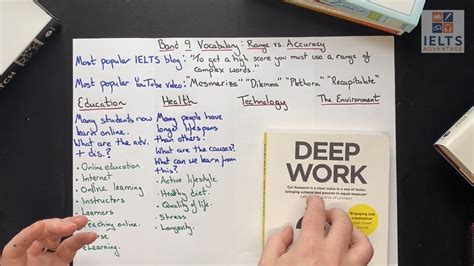 IELTS
ADVANTAGE
Band 9 Vocabulary: Range vs. Accuracy
Most popular IELTS blog: "To get a high score you must use a range of
complex words."
Most popular YouTube video: "Mesmerize" "Dilemma" "Plethora" "Recapitulate"
Education
Many students now
learn online.
What are the adv.
+ dis.?
• Online education
• Internet
• Online learning
• Instructors
Learners
Teaching online.
eLearning.
Health
Many people have
longer lifespans
than others.
What are the causes?
What can we learn from
this?
• Active lifestyle
• Healthy diet.
• Quality of life.
• Stress
• Longevity.
Technology
The Environment
DEEP
WORK
'Cal Newport is a clear voice in a sea of noise,
bringing science and passion in equal measure'
"Engaging and